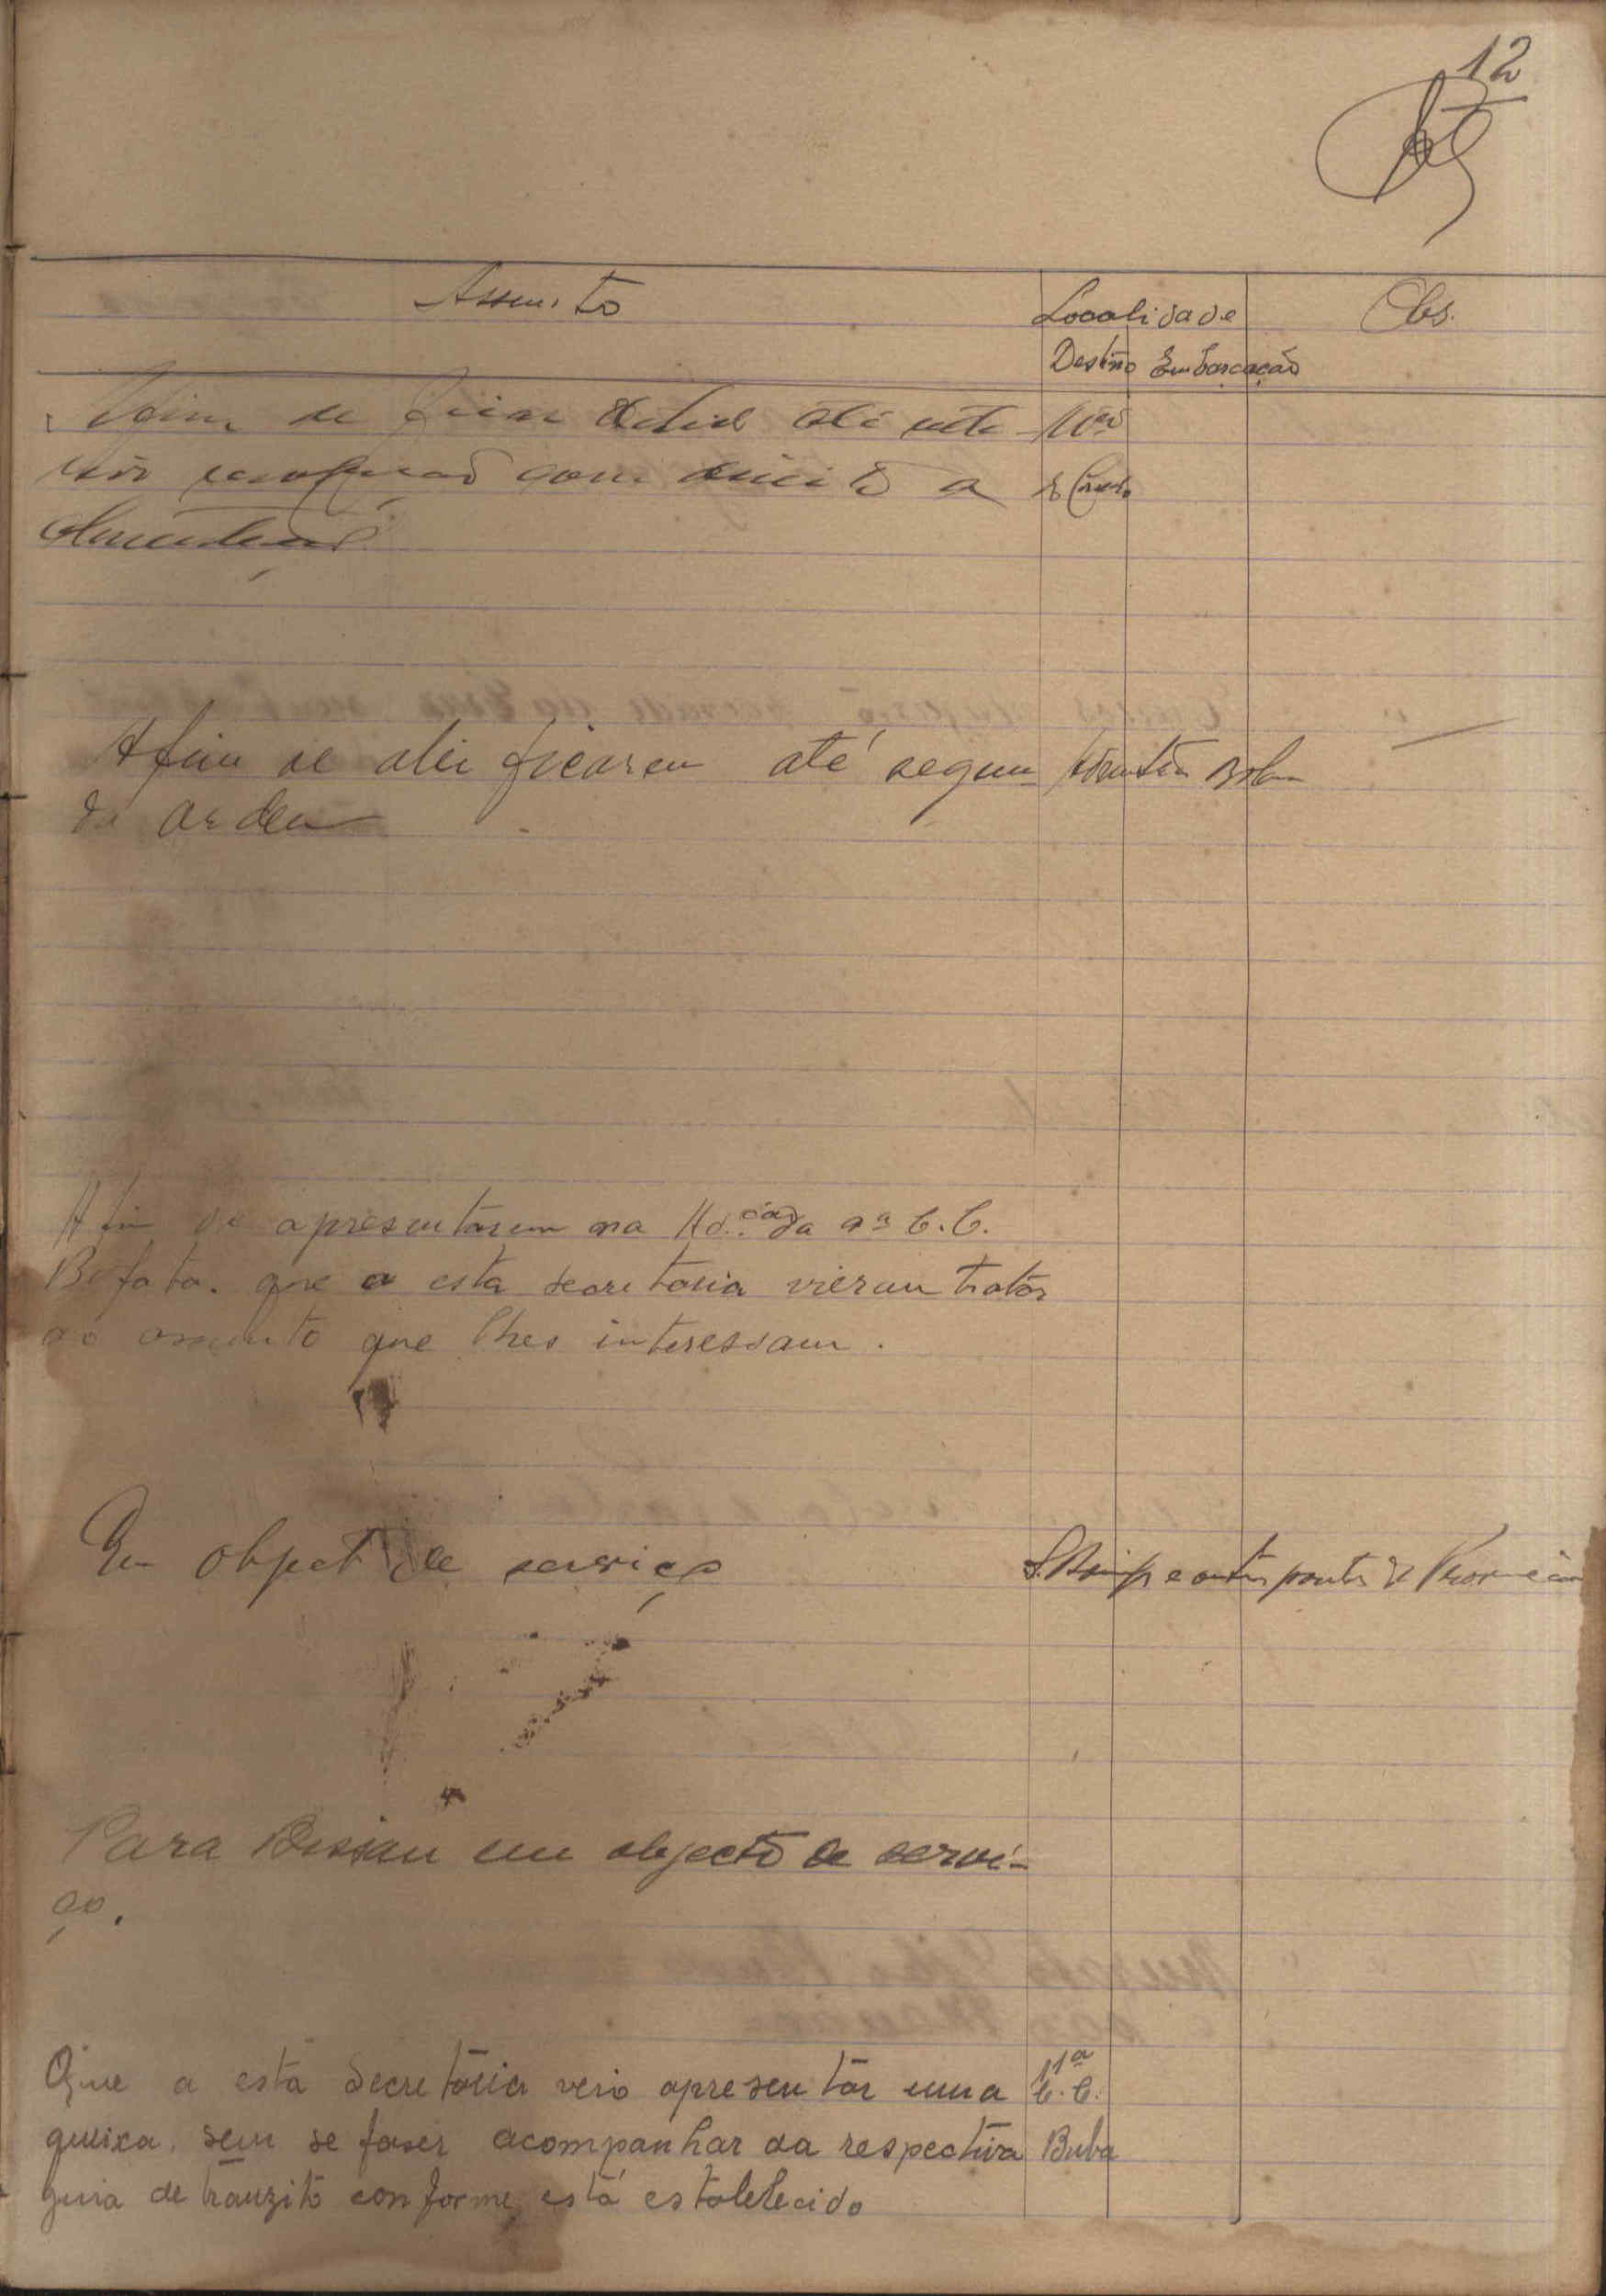 12
Assunto
Localidade
Obs.
Destino Embarcação
Afim de ficar detido até
resolução com direito a
alimentação
Afim de alei ficarem até segun
da ordem
Afim de apresentarem na Ad.ção da 9ª C.C.
Bafata. que a esta secretaria vieram tratar
de assunto que lhes interessam.
Em object de serviço
e outros pontos da Provincia
Para Bissau em objecto de servi-
ço.
Que a esta secretária veio apresentar uma
11ª C.C.
queixa, sem se faser acompanhar da respectiva
Buba
guia de tranzito conforme está estabelecido